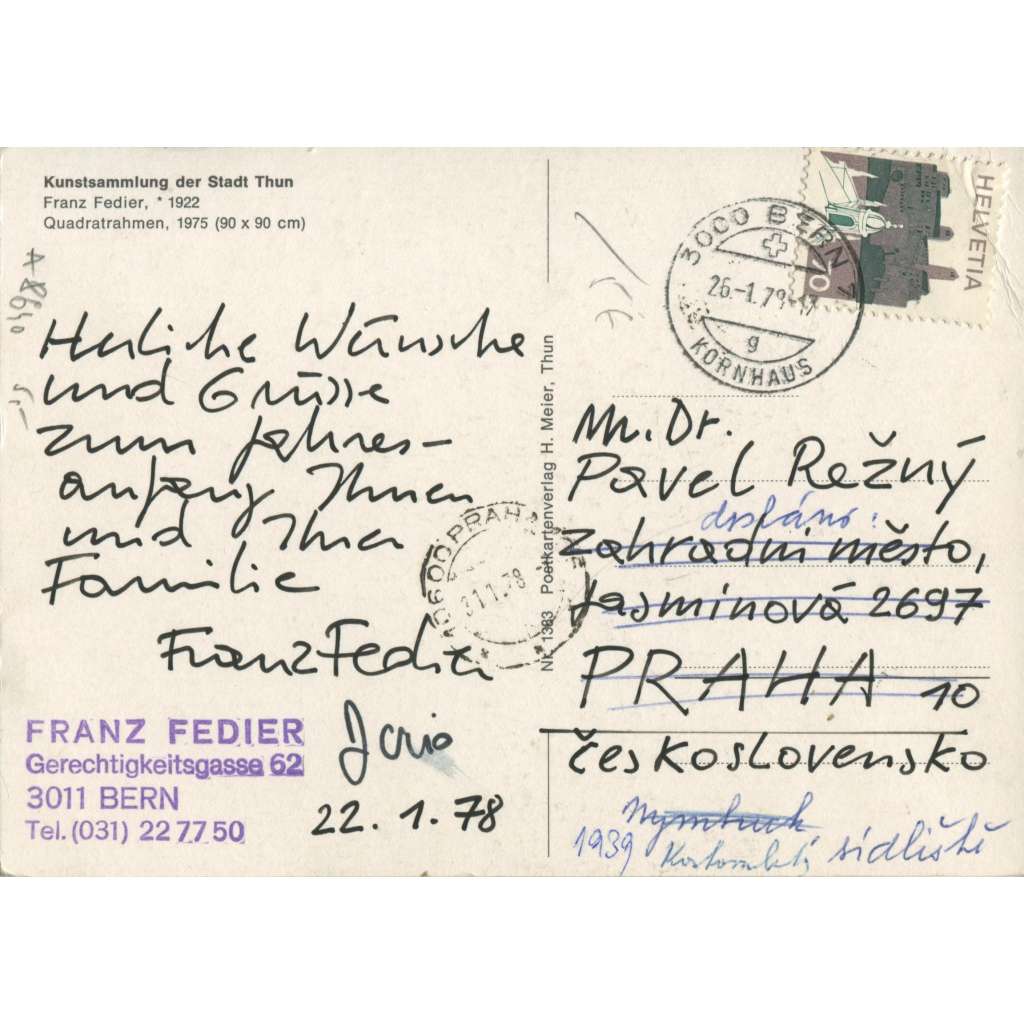 Kunstsammlung der Stadt Thun
Franz Fedier, * 1922
Quadratrahmen, 1975 (90 x 90 cm)
Herliche Wünsche
und Grüsse
zum Jahres-
anfang Ihnen
und Ihrer
Familie
Franz Fedier
22.1.78
FRANZ FEDIER
Gerechtigkeitsgasse 62
3011 BERN
Tel. (031) 22 77 50
Nr. 1383 Postkartenverlag H. Meier, Thun
10600 PRAHA
31.1.78
HELVETIA
70
3000 BERN 7
26.-1.78-17
g
KORNHAUS
Dr.
Pavel Režný
dosláno:
Zahradní město,
Jasminová 2697
PRAHA 10
Československo
1939
sídliště